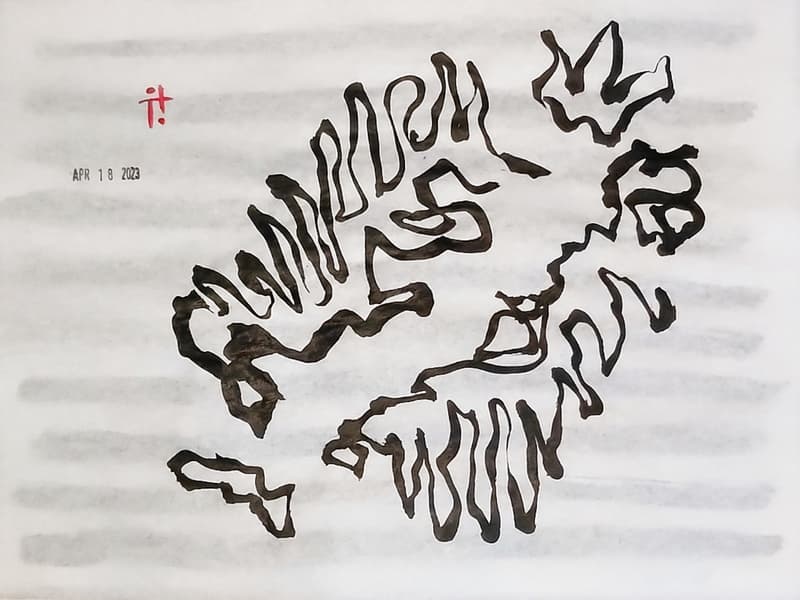 APR 18 2023